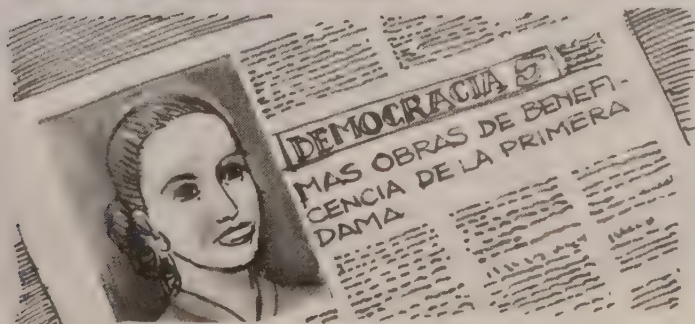 DEMOCRACIA 5
MAS OBRAS DE BENEFI-
CENCIA DE LA PRIMERA
DAMA